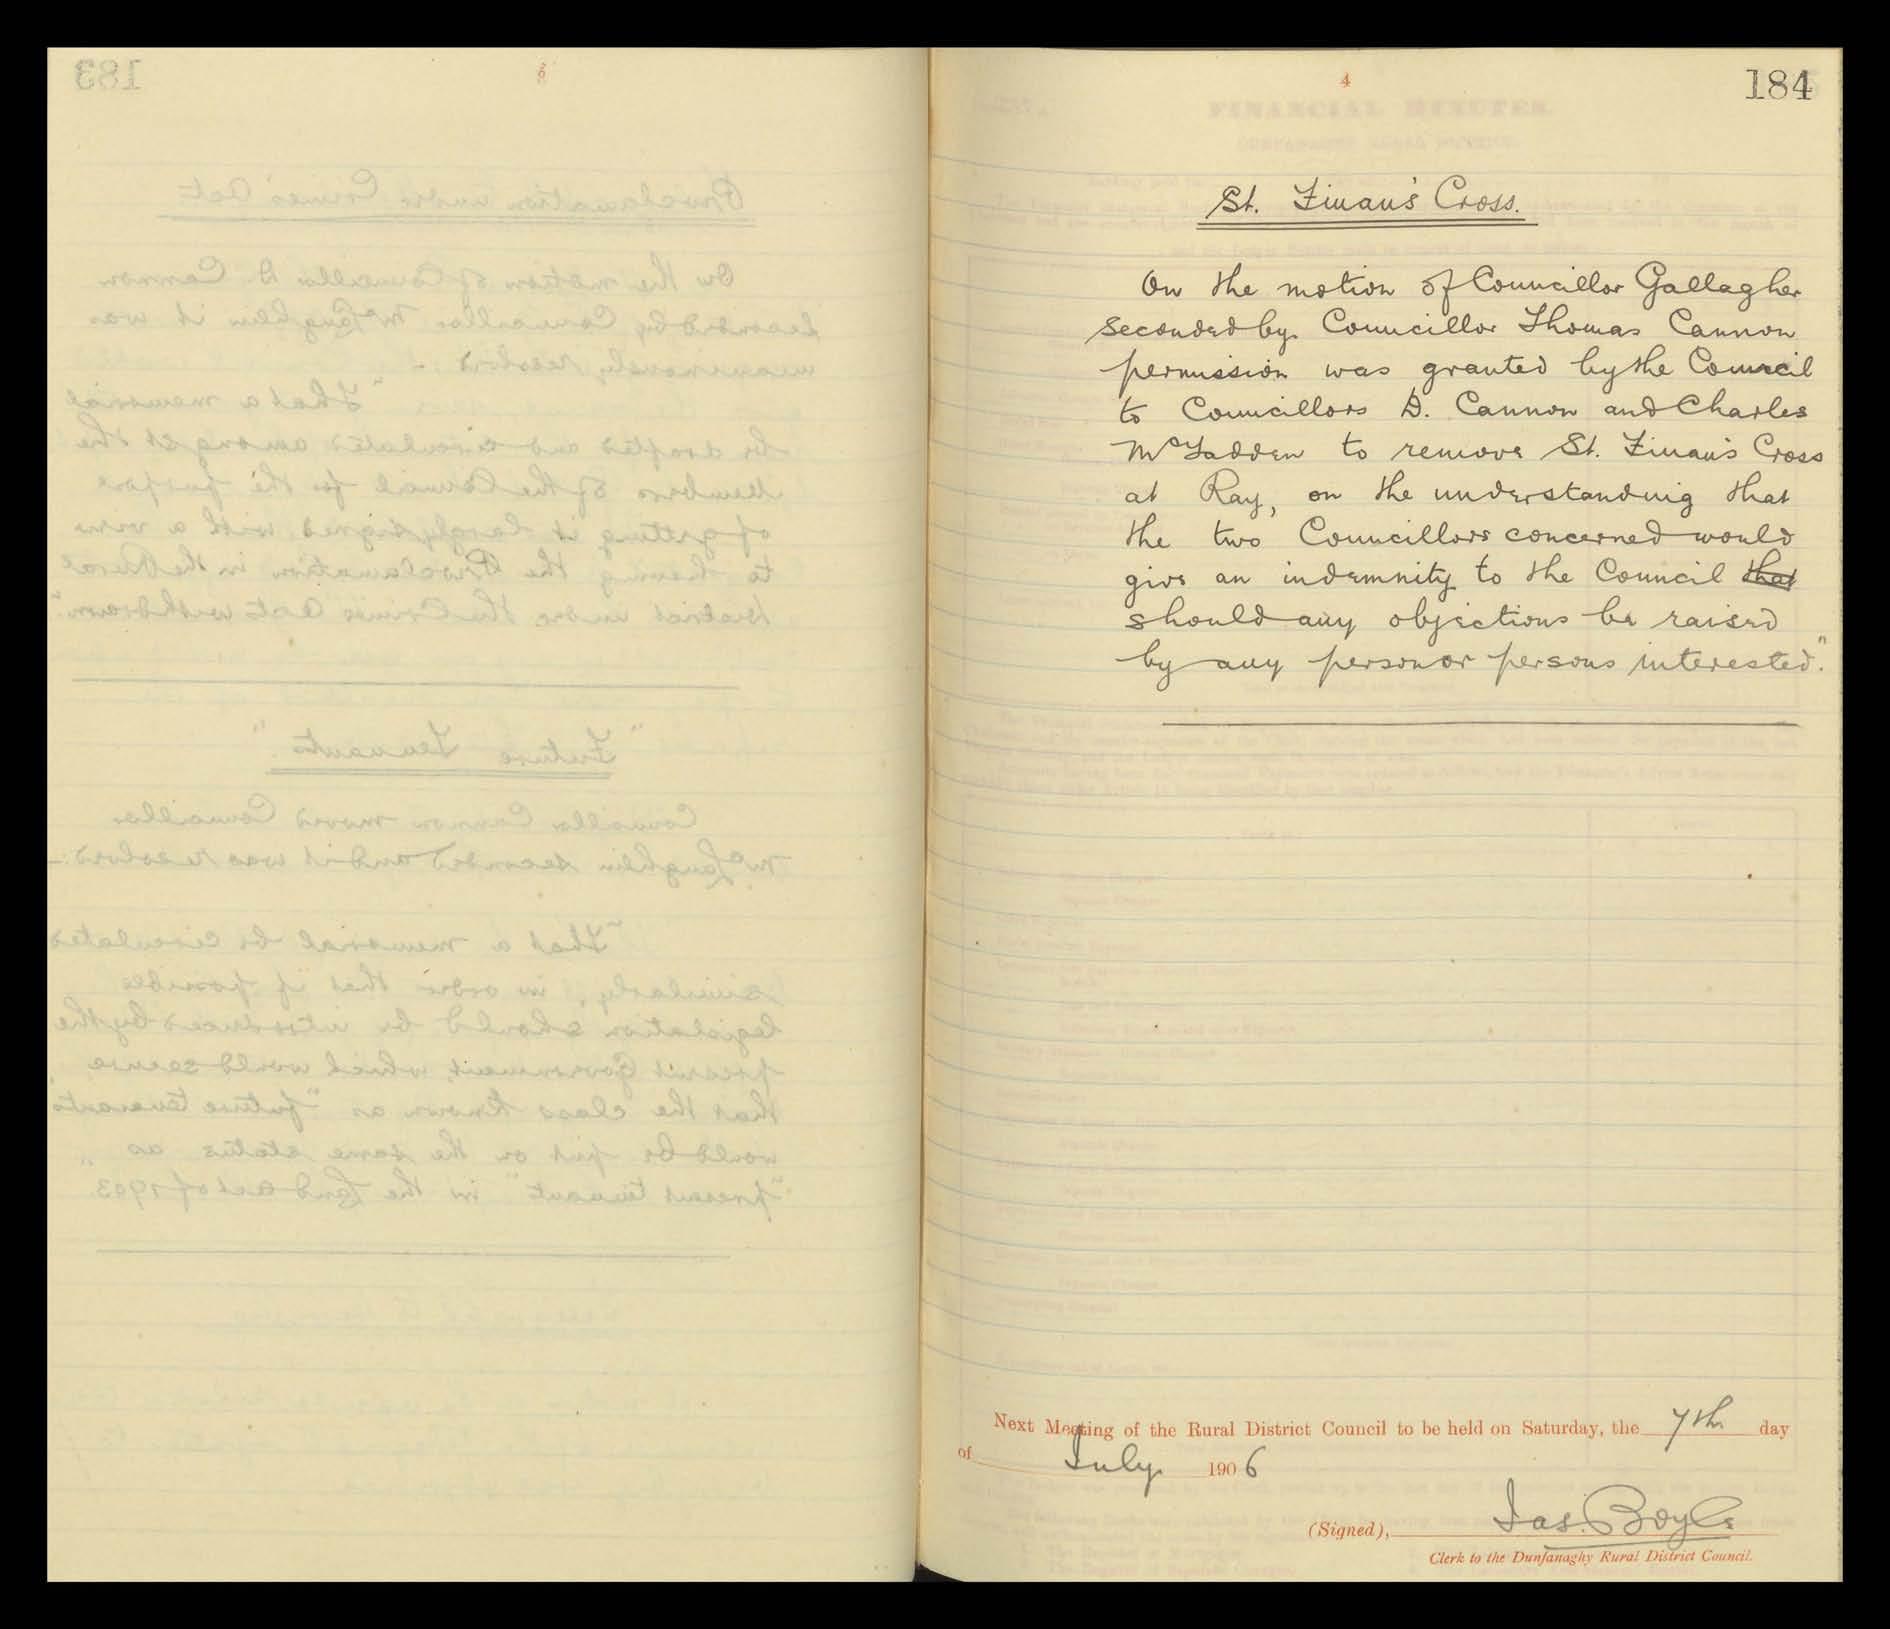 183
Proclamation under Crimes Act
On the motion of Councillor D. Cannon
seconded by Councillor McLaughlin it was
unanimously resolved :-
"That a memorial
be drafted and circulated amongst the
Members of the Council for the purpose
of getting it largely signed with a view
to having the Proclamation in the Rural
District under the Crimes Act withdrawn."
"Future Tenants"
Councillor Cannon moved Councillor
McLaughlin seconded and it was resolved :-
"That a memorial be circulated
similarly, in order that if possible
legislation should be introduced by the
present Government, which would secure
that the class known as "future tenants"
would be put on the same status as
"present tenant" in the Land Act of 1903.
4
184
St. Finan's Cross.
On the motion of Councillor Gallagher
seconded by Councillor Thomas Cannon
permission was granted by the Council
to Councillors D. Cannon and Charles
McFadden to remove St. Finan's Cross
at Ray, on the understanding that
the two Councillors concerned would
give an indemnity to the Council that
should any objections be raised
by any person or persons interested."
Next Meeting of the Rural District Council to be held on Saturday, the 7th day
of July 1906
(Signed), Jas. Boyle
Clerk to the Dunfanaghy Rural District Council.